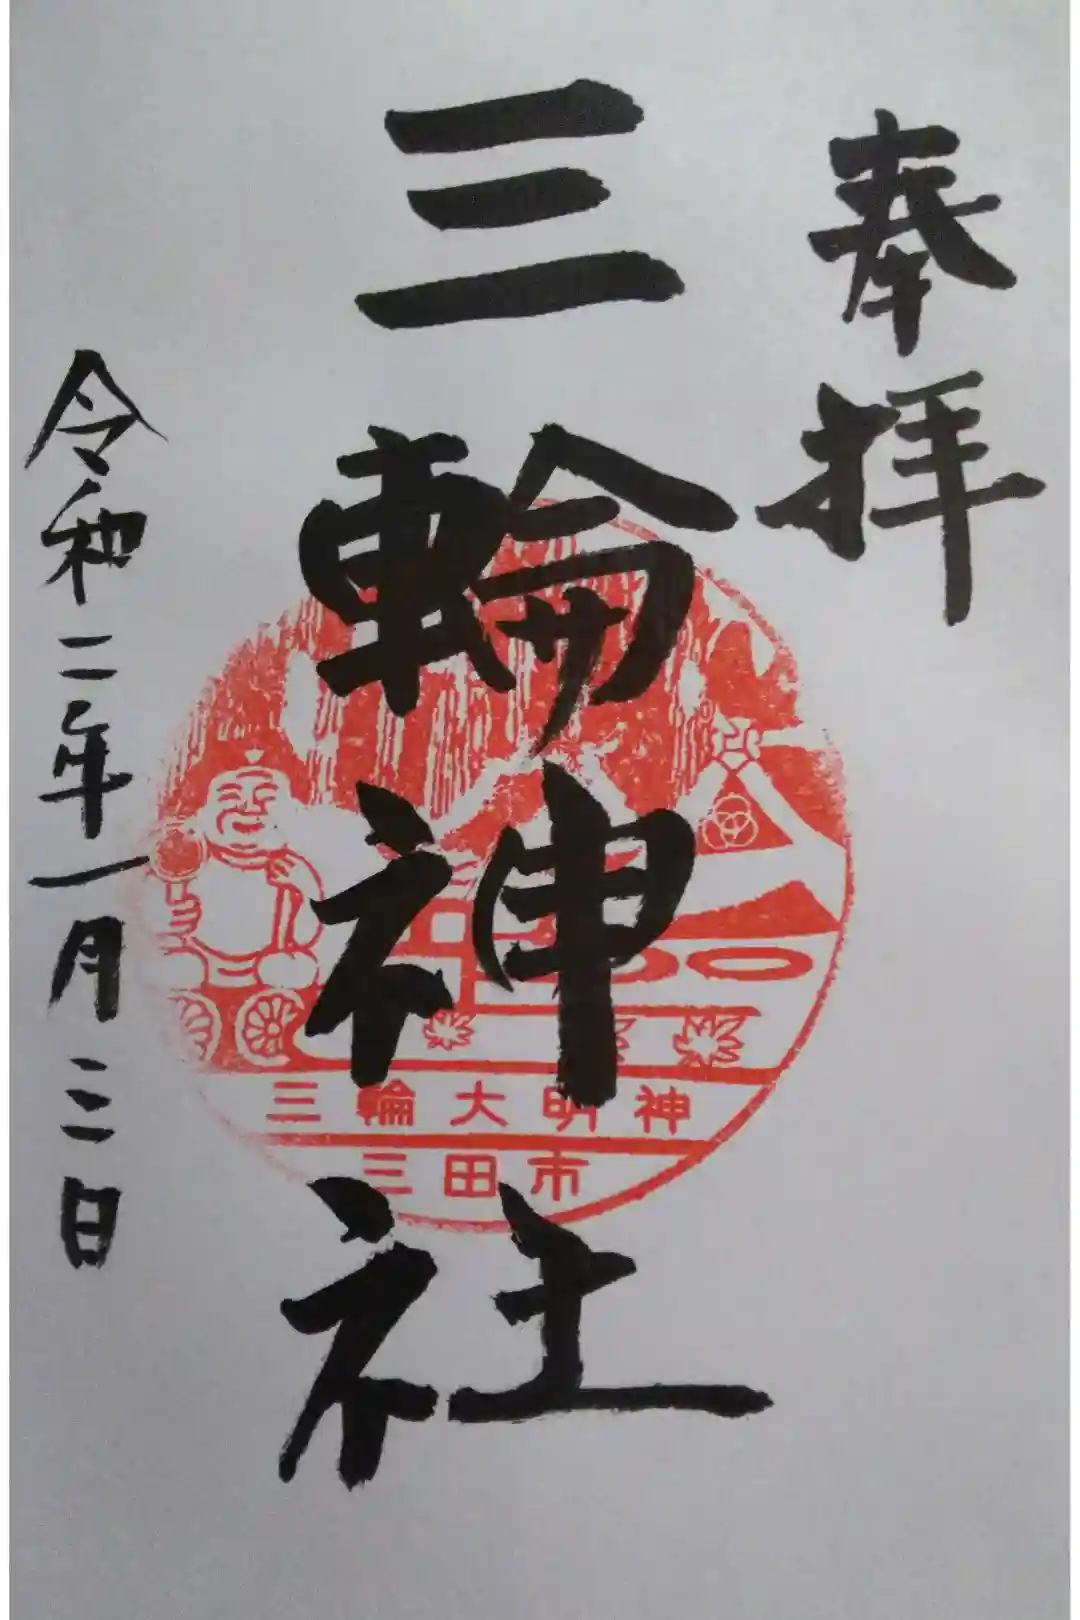 奉拝
三輪神社
三輪大明神
三田市
令和二年一月三日